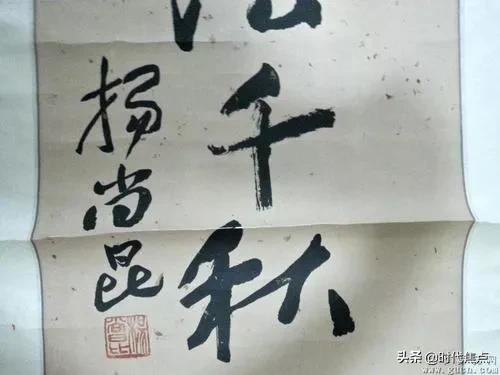 千秋
杨尚昆
头条 @时代焦点
www.gucn.com